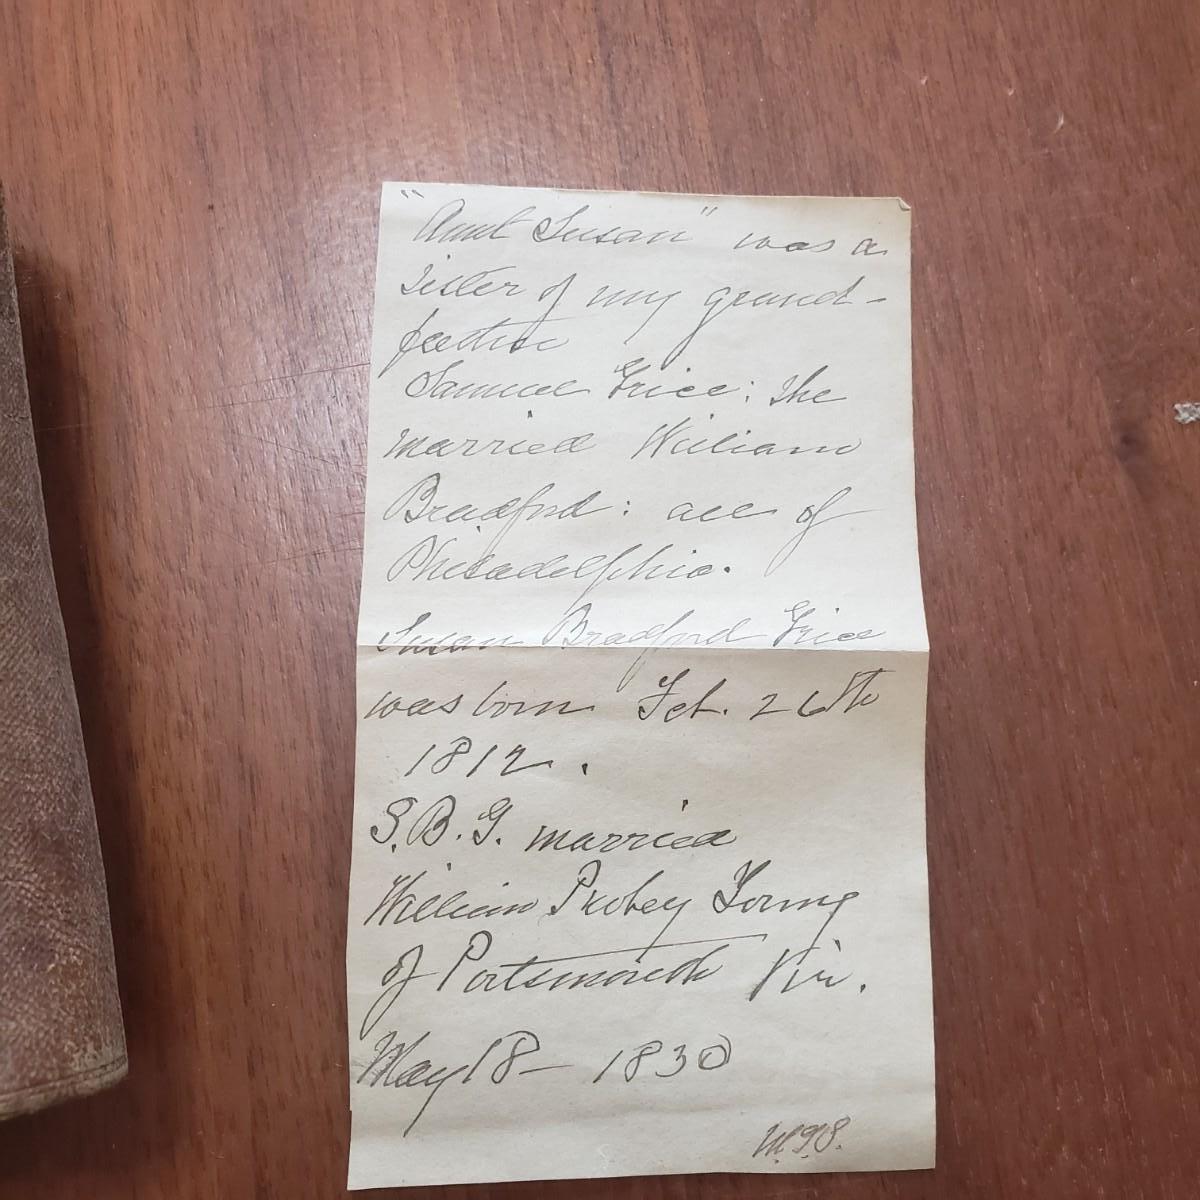 "Aunt Susan" was a
sister of my grand-
father
Samuel Grice: She
married William
Bradford: all of
Philadelphia.
Susan Bradford Grice
was born Feb. 26th
1812.
S.B.G. married
William Probey Young
of Portsmouth Vir.
May 18- 1830